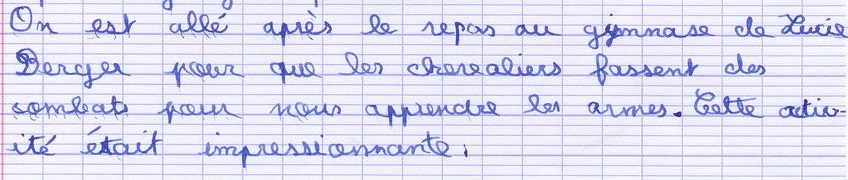 On est allé après le repas au gymnase de Lucie
Berger pour que les chevaliers fassent des
combats pour nous apprendre les armes. Cette activ-
ité était impressionnante.